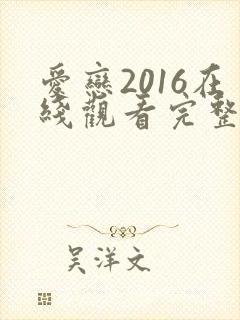 愛戀2016在
綫觀看完整
吴洋文